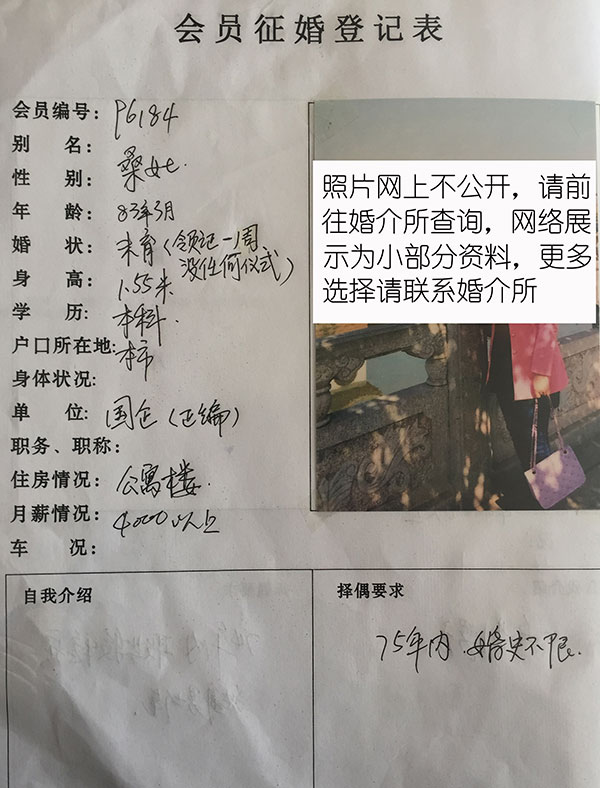 会员征婚登记表
会员编号：P6184
别 名：桑女
性 别：
年 龄：83年3月
婚 状：未育（领记一周
没任何仪式）
身 高：1.55米
学 历：本科.
户口所在地：本市
身体状况：
单 位：国企（正编）
职务、职称：
住房情况：公寓楼.
月薪情况：4000以上
车 况：
照片网上不公开，请前
往婚介所查询，网络展
示为小部分资料，更多
选择请联系婚介所
自我介绍
择偶要求
75年内.婚史不限.